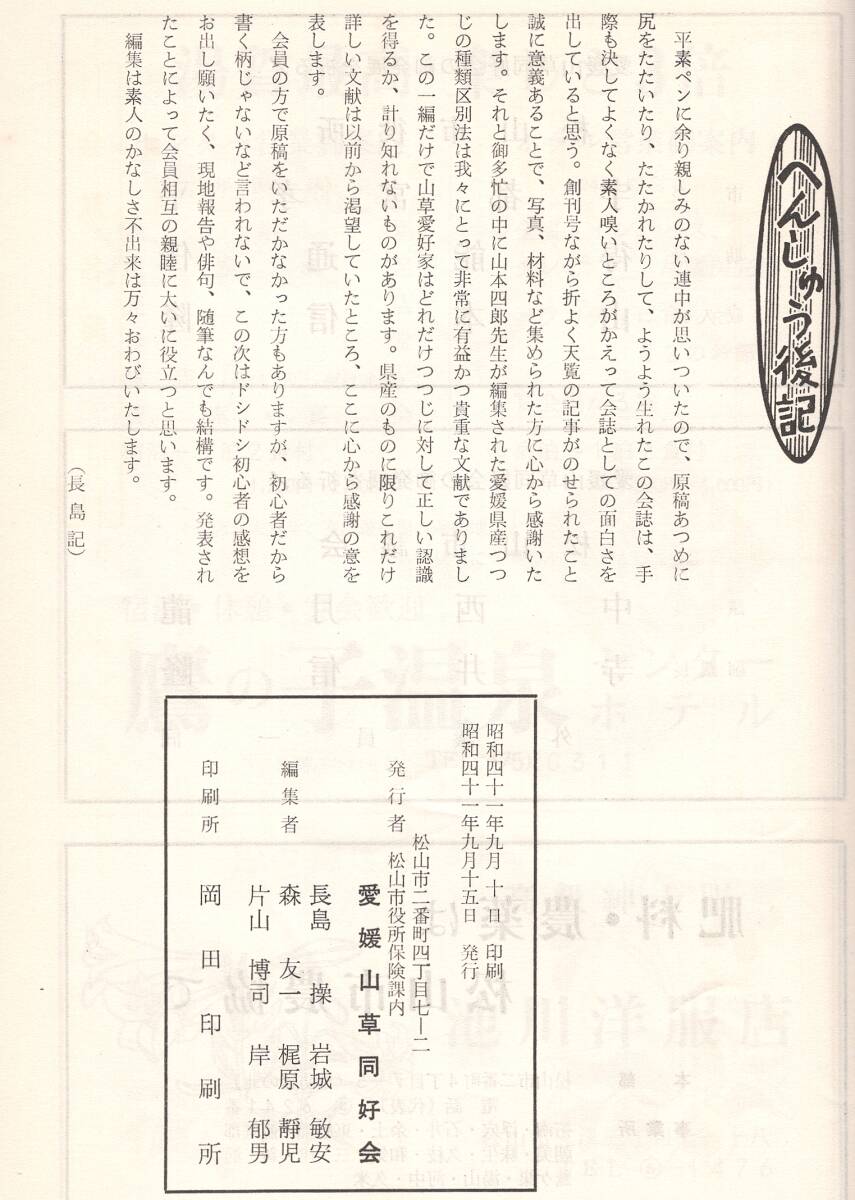 へんしゅう後記
平素ペンに余り親しみのない連中が思いついたので、原稿あつめに
尻をたたいたり、たたかれたりして、ようよう生れたこの会誌は、手
際も決してよくなく素人嗅いところがかえって会誌としての面白さを
出していると思う。創刊号ながら折よく天覧の記事がのせられたこと
誠に意義あることで、写真、材料など集められた方に心から感謝いた
します。それと御多忙の中に山本四郎先生が編集された愛媛県産つつ
じの種類区別法は我々にとって非常に有益かつ貴重な文献でありまし
た。この一編だけで山草愛好家はどれだけつつじに対して正しい認識
を得るか、計り知れないものがあります。県産のものに限りこれだけ
詳しい文献は以前から渇望していたところ、ここに心から感謝の意を
表します。
会員の方で原稿をいただかなかった方もありますが、初心者だから
書く柄じゃないなど言われないで、この次はドシドシ初心者の感想を
お出し願いたく、現地報告や俳句、随筆なんでも結構です。発表され
たことによって会員相互の親睦に大いに役立つと思います。
編集は素人のかなしさ不出来は万々おわびいたします。
（長島記）
昭和四十一年九月十日 印刷
昭和四十一年九月十五日 発行
松山市二番町四丁目七ー二
発行者 松山市役所保険課内
愛媛山草同好会
長島 操 岩城 敏安
編集者 森 友一 梶原 靜児
片山 博司 岸 郁男
印刷所 岡田印刷所